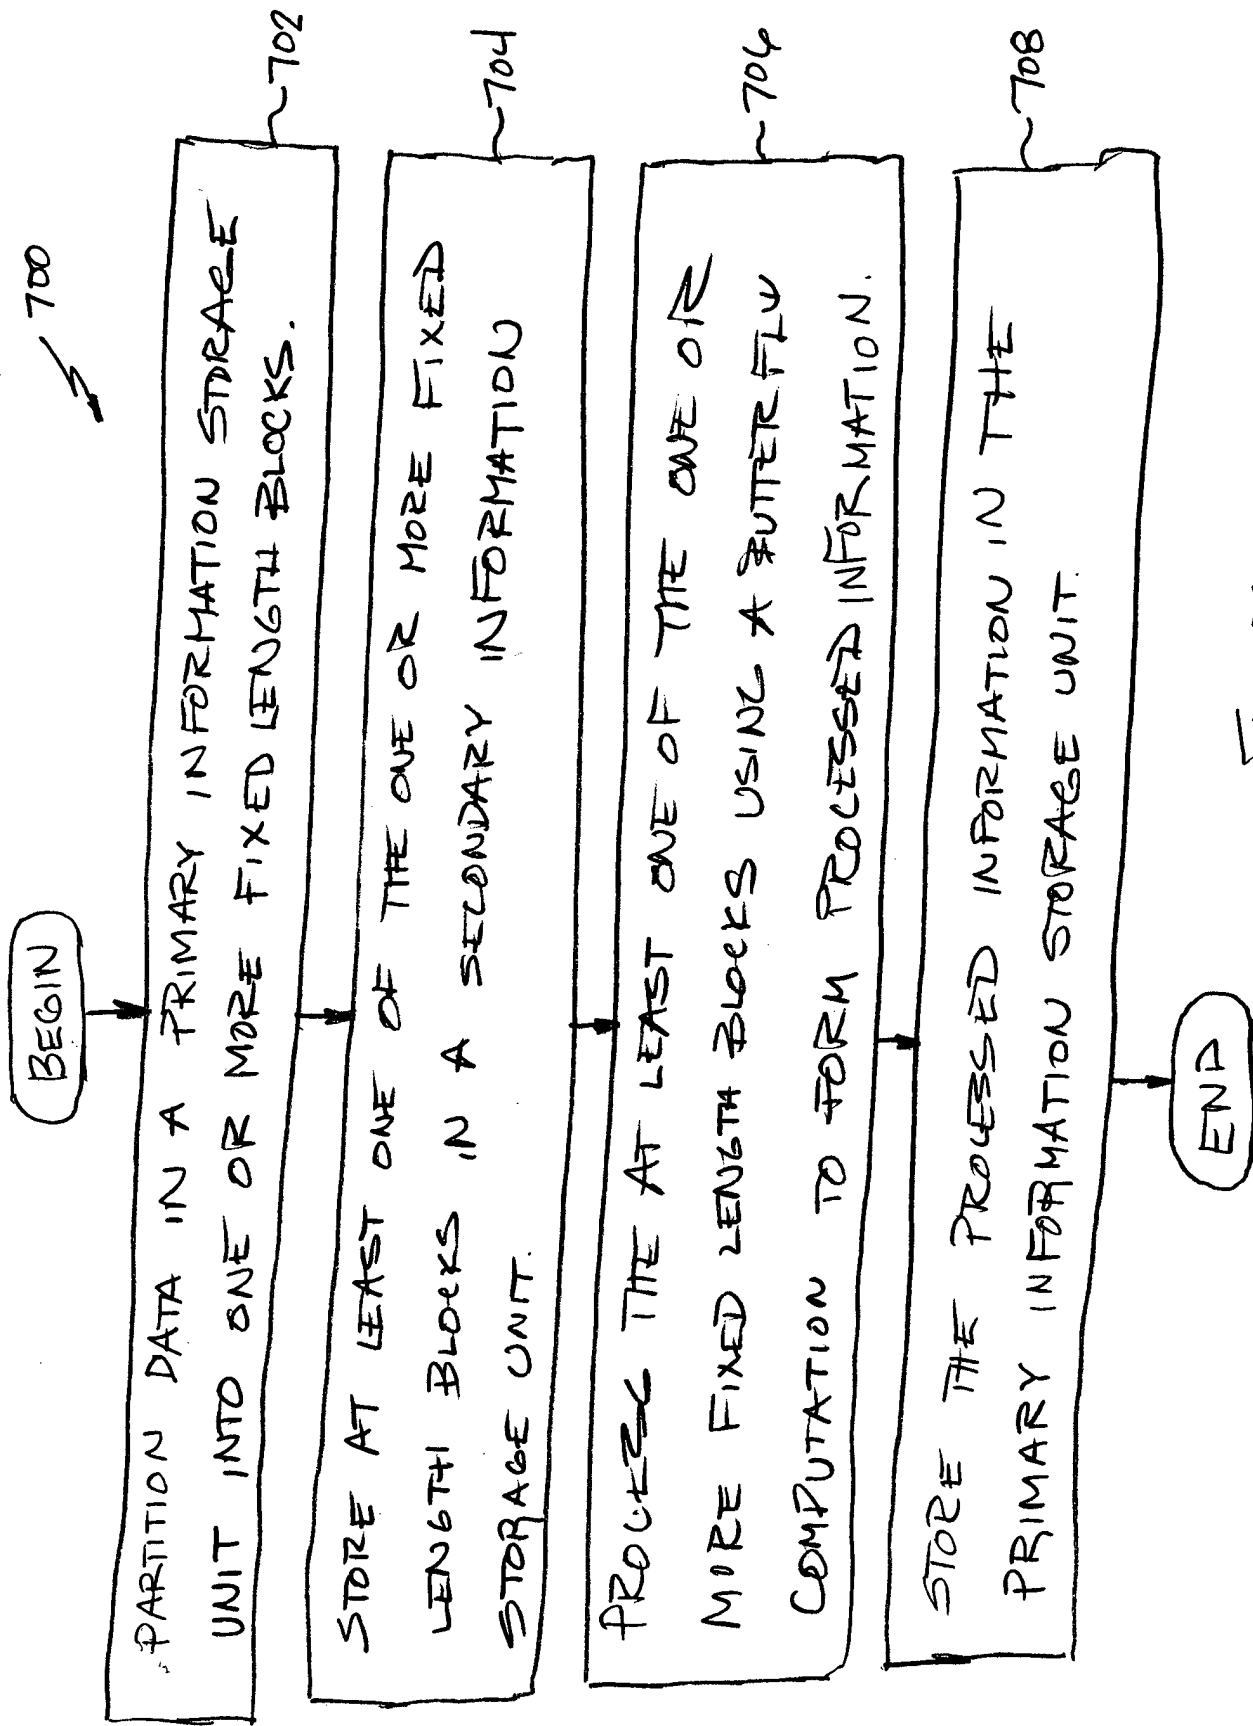 700
BEGIN
PARTITION DATA IN A PRIMARY INFORMATION STORAGE
UNIT INTO ONE OR MORE FIXED LENGTH BLOCKS.
702
STORE AT LEAST ONE OF THE ONE OR MORE FIXED
LENGTH BLOCKS IN A SECONDARY INFORMATION
STORAGE UNIT.
704
PROCESS THE AT LEAST ONE OF THE ONE OR
MORE FIXED LENGTH BLOCKS USING A BUTTERFLY
COMPUTATION TO FORM PROCESSED INFORMATION.
706
STORE THE PROCESSED INFORMATION IN THE
PRIMARY INFORMATION STORAGE UNIT.
708
END